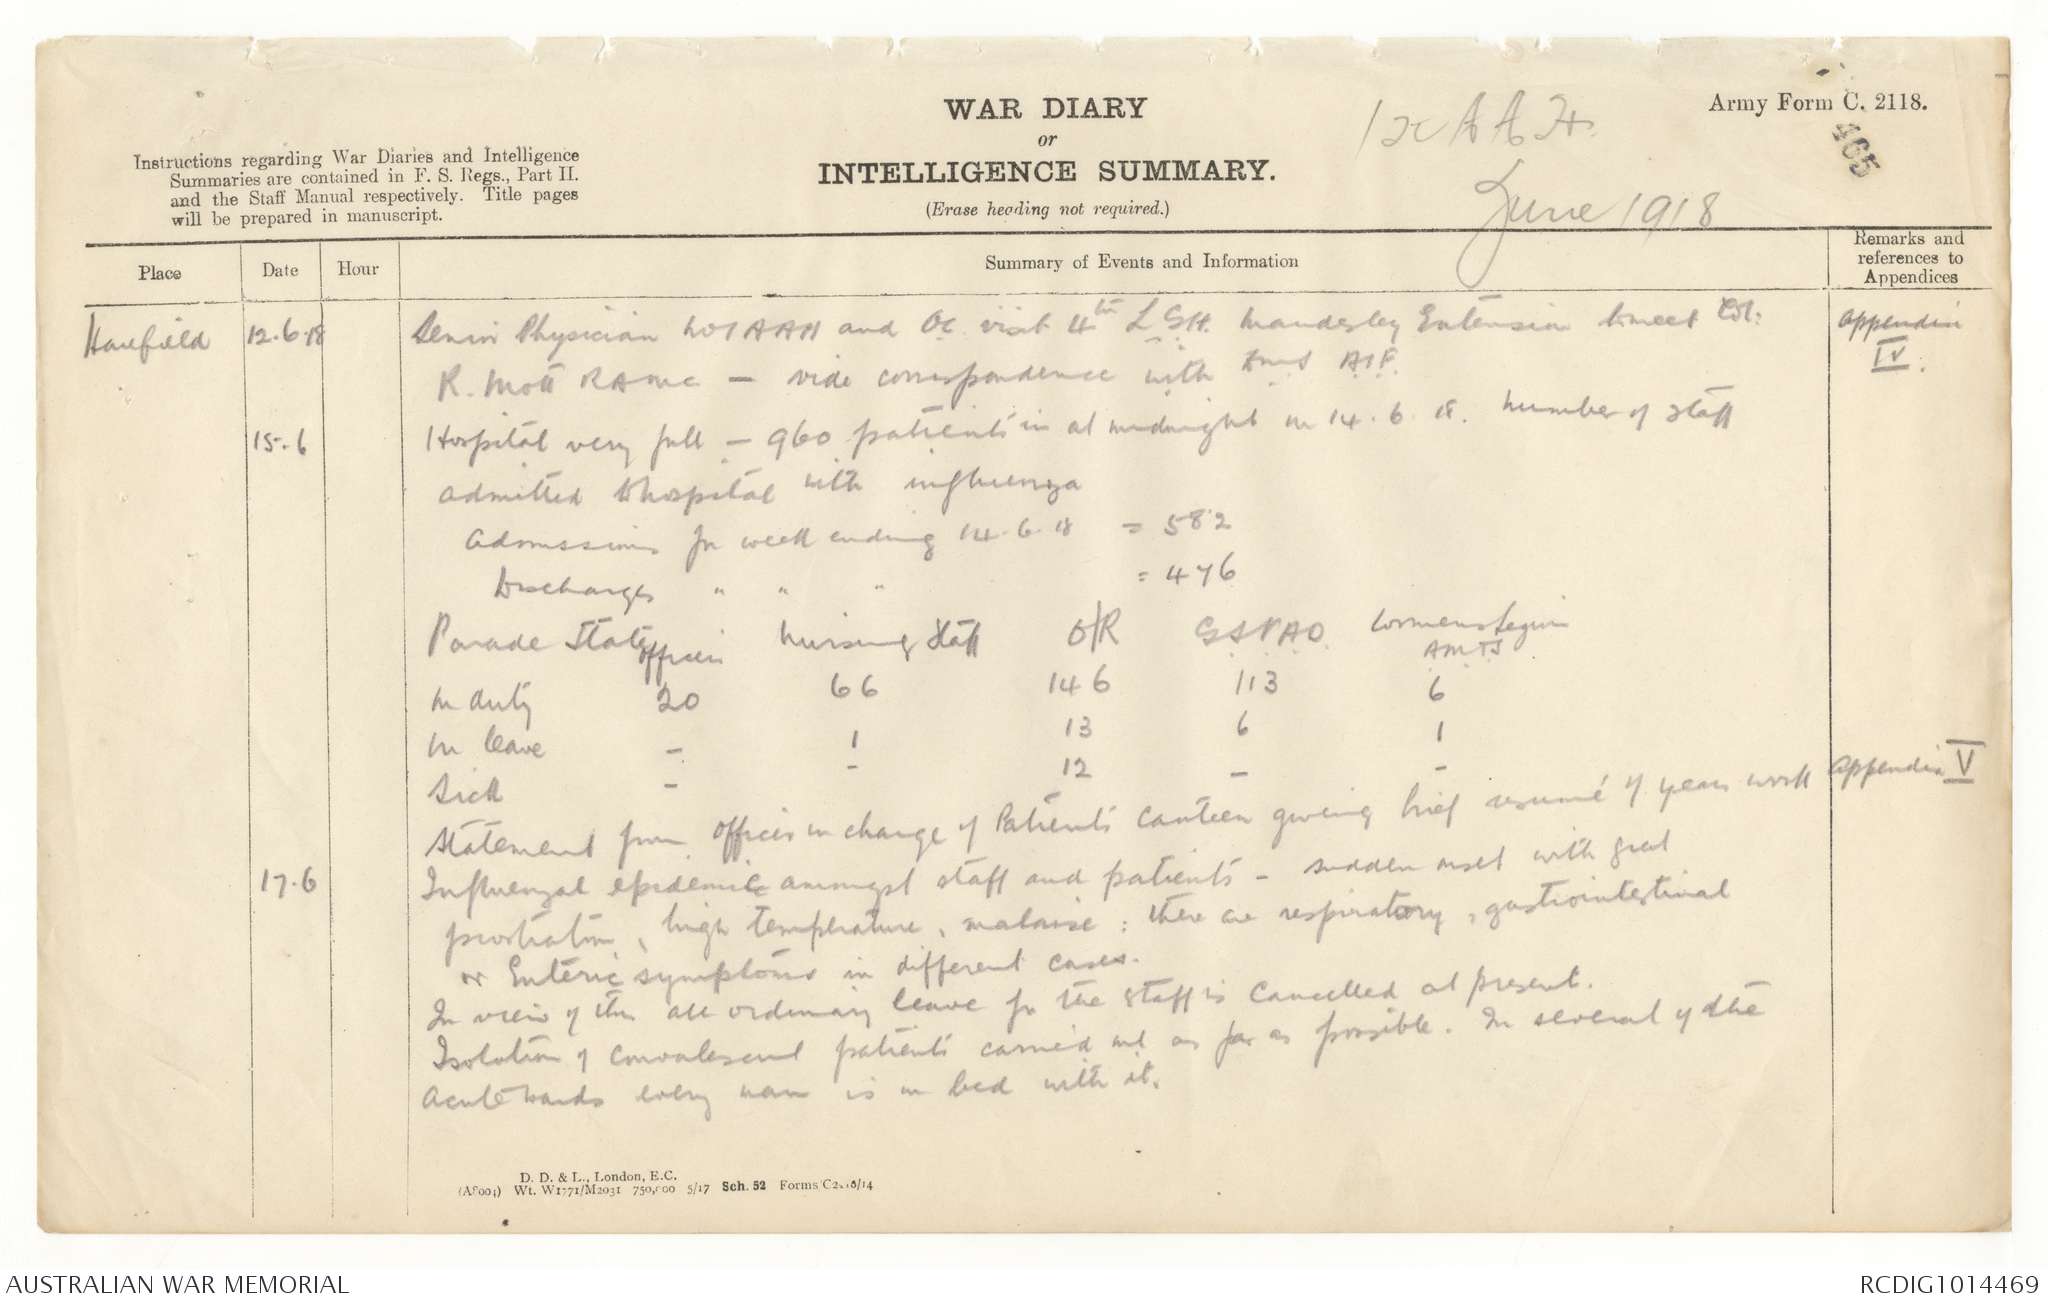 WAR DIARY
or
INTELLIGENCE SUMMARY.
(Erase heading not required.)
Army Form C. 2118.
465
1st A A H.
June 1918
Instructions regarding War Diaries and Intelligence
Summaries are contained in F. S. Regs., Part II.
and the Staff Manual respectively. Title pages
will be prepared in manuscript.
Place Date Hour Summary of Events and Information Remarks and references to Appendices
Harefield 12.6.18 Senior Physician No 1 AAH and OC visit 4th L G H. Maudesley Extension to meet Col. Appendix
R. Mott RAMC — vide correspondence with DMS AIF. IV.
15.6 Hospital very full — 960 patients in at midnight on 14.6.18. Number of staff
admitted to hospital with influenza
Admissions for week ending 14.6.18 = 582
Discharges " " " = 476
Parade State Officers Nursing Staff O/R GSVAD Womens Legion AMTS
On duty 20 66 146 113 6
On leave - 1 13 6 1
Sick - - 12 - -
Statement from Officer in charge of Patients Canteen giving brief resumé of years work Appendix V
17.6 Influenzal epidemic amongst staff and patients - sudden onset with great
prostration, high temperature, malaise: there are respiratory, gastrointestinal
or Enteric symptoms in different cases.
In view of this all ordinary leave for the staff is cancelled at present.
Isolation of convalescent patients carried out as far as possible. In several of the
acute wards every man is in bed with it.
D. D. & L., London, E.C.
(A8004) Wt. W1771/M2031 750,000 5/17 Sch. 52 Forms/C2118/14
AUSTRALIAN WAR MEMORIAL
RCDIG1014469